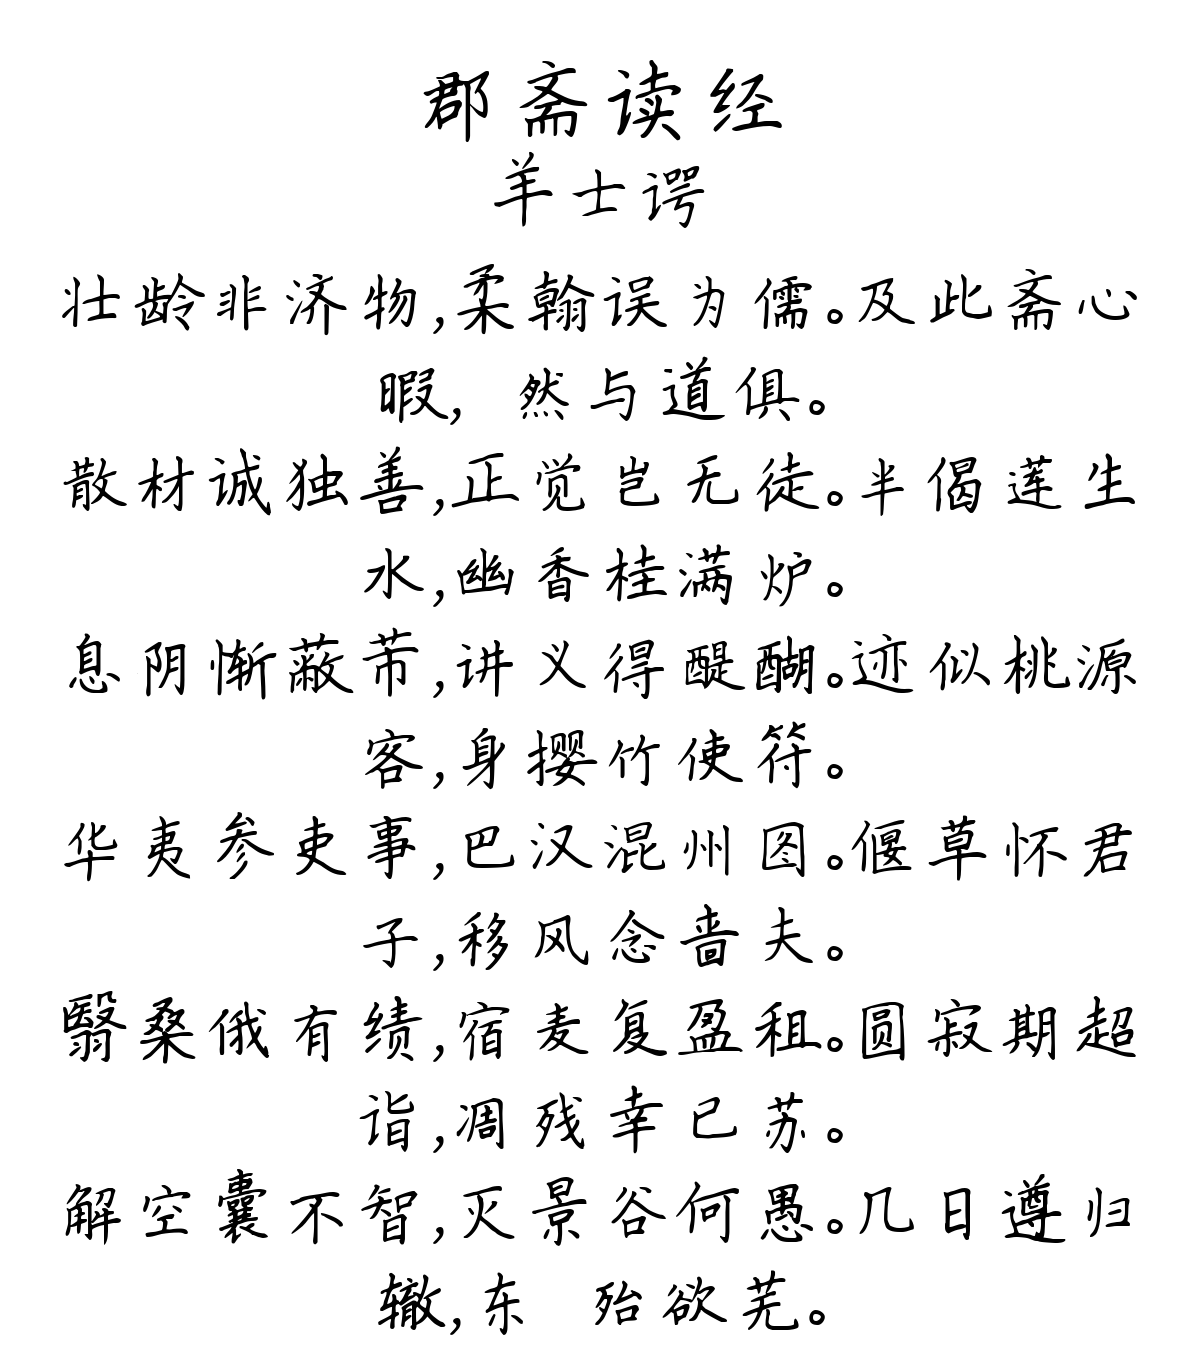 郡斋读经
羊士谔
壮龄非济物,柔翰误为儒。及此斋心
暇, 然与道俱。
散材诚独善,正觉岂无徒。半偈莲生
水,幽香桂满炉。
息阴惭蔽芾,讲义得醍醐。迹似桃源
客,身撄竹使符。
华夷参吏事,巴汉混州图。偃草怀君
子,移风念啬夫。
翳桑俄有绩,宿麦复盈租。圆寂期超
诣,凋残幸已苏。
解空囊不智,灭景谷何愚。几日遵归
辙,东 殆欲芜。